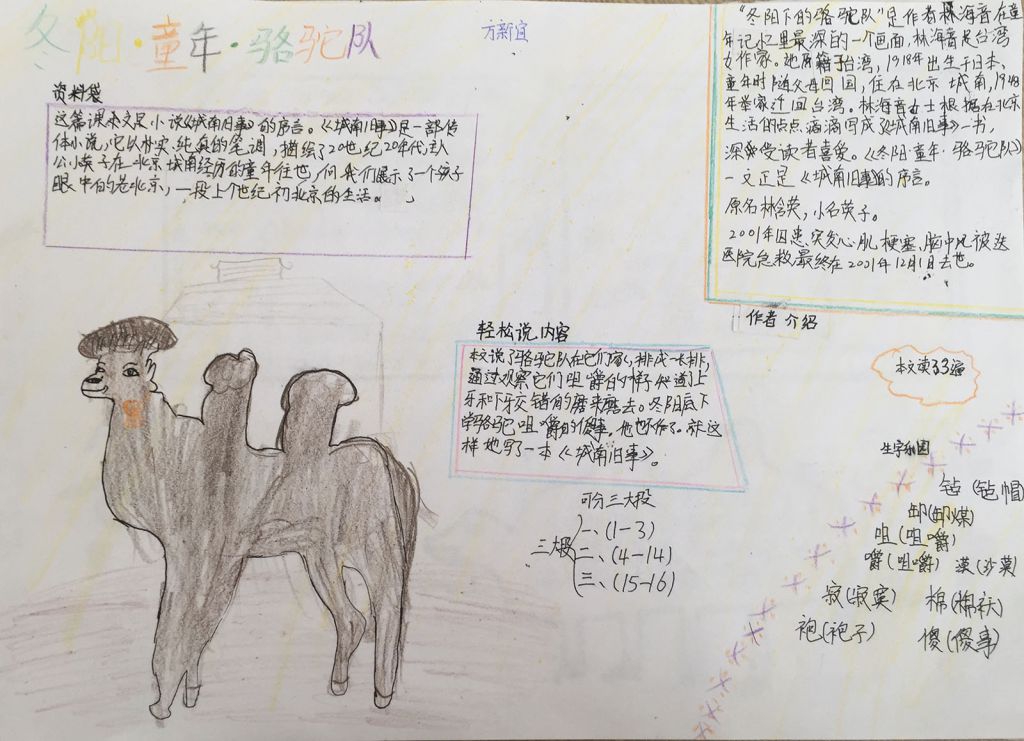 冬阳·童年·骆驼队
方新宜
资料袋
这篇课本文是小说《城南旧事》的序言。《城南旧事》是一部传
体小说,它以朴实、纯真的笔调,描绘了20世纪20年代,主人
公小英子在北京城南经历的童年往也,向我们展示了一个孩子
眼中的老北京,一段上个世纪初北京的生活。
"冬阳下的骆驼队"是作者林海音在童
年记忆里最深的一个画面,林海音是台湾
女作家。她原籍于台湾,1918年出生于日本、
童年时随父母回国,住在北京城南,1948
年举家迁回台湾。林海音女士根据在北京
生活的点点滴滴写成了《城南旧事》一书,
深受读者喜爱。《冬阳·童年·骆驼队》
一文正是《城南旧事》的序言。
原名林含英,小名英子。
2001年因患突发心肌梗塞、脑中风被送
医院急救,最终在2001年12月1日去也。
作者介绍
轻松说内容
本文说了骆驼队在它们家,排成一长排,
通过观察它们咀嚼的样子知道了上
牙和下牙交错的磨来磨去。冬阳底下
学骆驼咀嚼的傻事。他也不作了。就这
样她写了一本《城南旧事》。
可分三大段
三段
一、(1-3)
二、(4-14)
三、(15-16)
本文读33遍
生字乐园
毡(毡帽)
卸(卸煤)
咀(咀嚼)
嚼(咀嚼) 漠(沙漠)
寂(寂寞) 棉(棉袄)
袍(袍子) 傻(傻事)